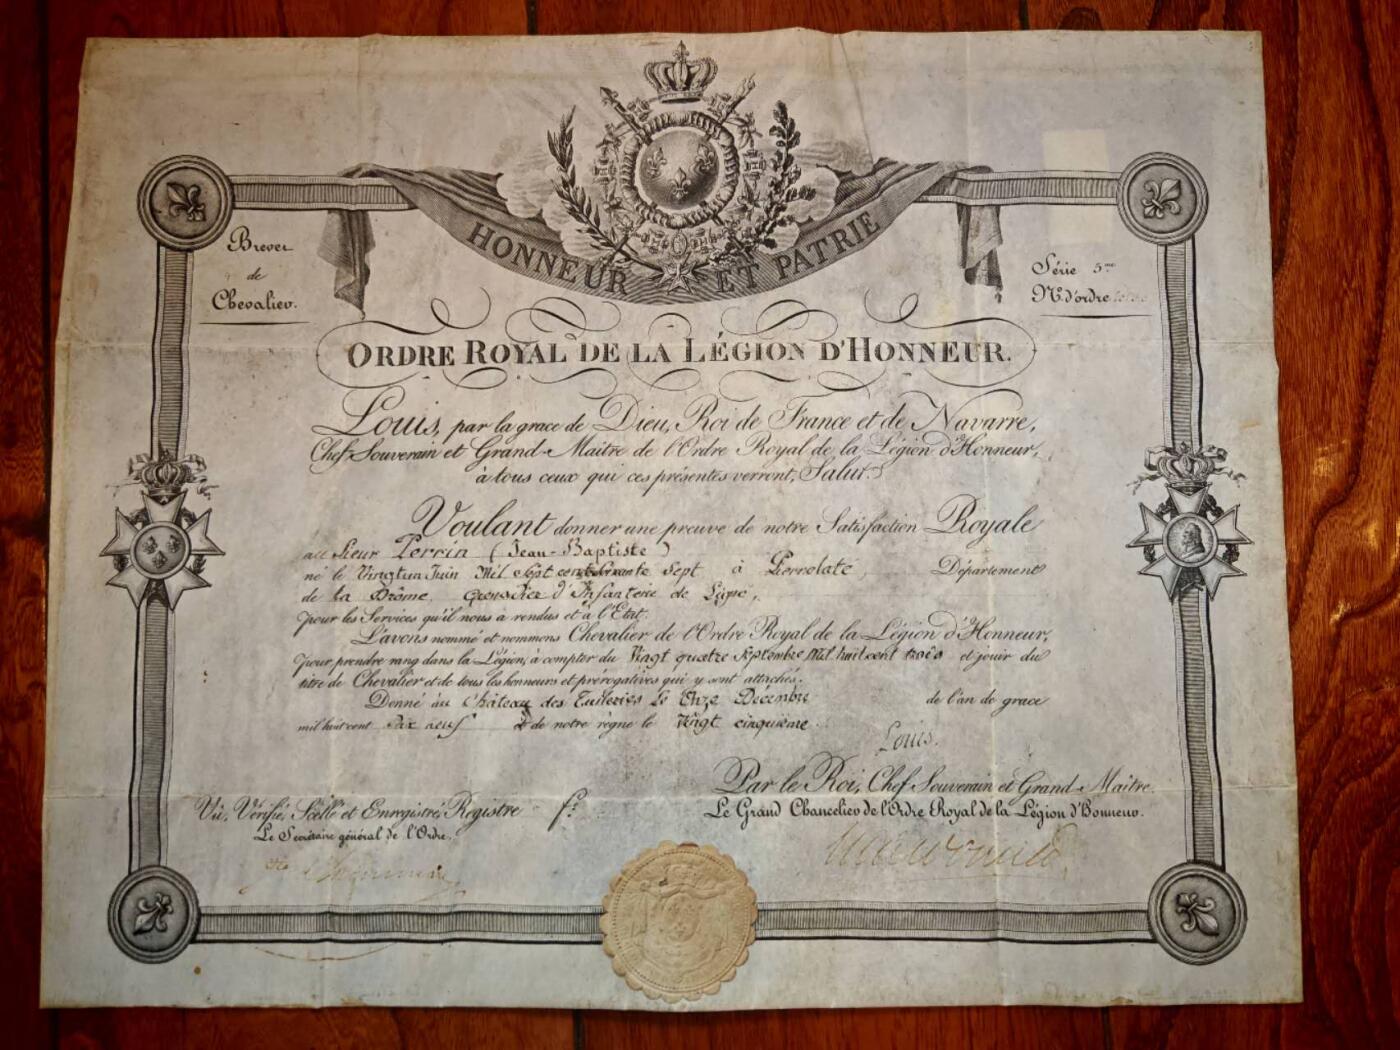 HONNEUR ET PATRIE
Brevet
de
Chevalier.
Série 5me
No. d'ordre
ORDRE ROYAL DE LA LÉGION D'HONNEUR.
Louis, par la grace de Dieu, Roi de France et de Navarre,
Chef Souverain et Grand-Maître de l'Ordre Royal de la Légion d'Honneur,
à tous ceux qui ces présentes verront, Salut.
Voulant donner une preuve de notre Satisfaction Royale
au Sieur Perrin (Jean-Baptiste)
né le Vingt un Juin Mil Sept cent Soixante Sept à Pierrelate, Département
de la Drôme, Grenadier d'Infanterie de Ligne,
pour les Services qu'il nous à rendus et à l'Etat.
L'avons nommé et nommons Chevalier de l'Ordre Royal de la Légion d'Honneur,
pour prendre rang dans la Légion, à compter du Vingt quatre Septembre Mil huit cent trois et jouir du
titre de Chevalier et de tous les honneurs et prérogatives qui y sont attachés.
Donné au Château des Tuileries le Onze Décembre de l'an de grace
mil huit cent Dix neuf & de notre règne le Vingt cinquième.
Louis.
Par le Roi, Chef Souverain et Grand-Maître.
Vu, Vérifié, Scellé et Enregistré, Registre fo.
Le Grand Chancelier de l'Ordre Royal de la Légion d'Honneur.
Le Secrétaire général de l'Ordre,